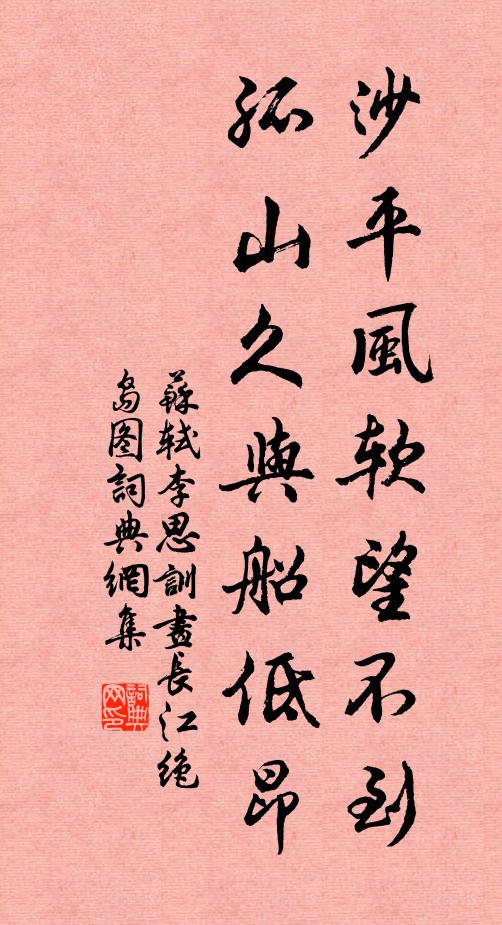 沙平風软望不到
孤山久與船低昂
蘇轼李思訓畫長江绝
岛图詞典網集
詞典
网印